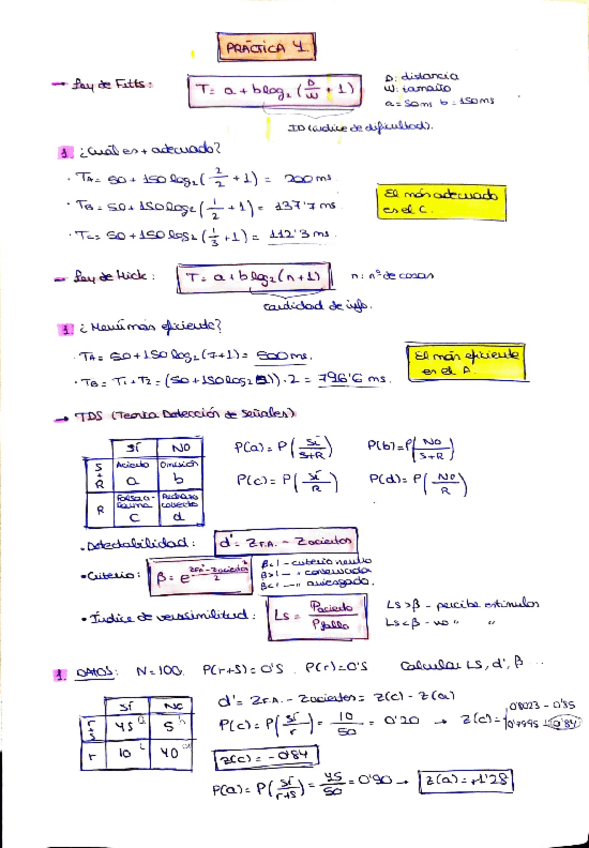 PRÁCTICA 4.
→ Ley de Fitts: T = a + b log₂ (D/W + 1)
D: distancia
W: tamaño
a = 50ms b = 150ms
ID (índice de dificultad).
1. ¿Cuál es + adecuado?
· TA = 50 + 150 log₂ (2/2 + 1) = 200 ms.
· TB = 50 + 150 log₂ (1/2 + 1) = 137'7 ms
· TC = 50 + 150 log₂ (1/3 + 1) = 112'3 ms.
El más adecuado
es el C.
→ Ley de Hick: T = a + b log₂ (n+1) n: nº de cosas
cantidad de info.
1. ¿Menú más eficiente?
· TA = 50 + 150 log₂ (7+1) = 500 ms.
· TB = T1 + T2 = (50 + 150 log₂ )) · 2 = 796'6 ms.
El más eficiente
es el A.
→ TDS (Teoría Detección de Señales)
SÍ NO
S+R Acierto a Omisión b
R Falsa alarma c Rechazo correcto d
P(a) = P(Sí/S+R) P(b) = P(No/S+R)
P(c) = P(Sí/R) P(d) = P(No/R)
· Detectabilidad: d' = Z F.A. - Z aciertos
· Criterio: β = e
β<1 - criterio neutro
β>1 - " conservador
β<1 - " arriesgado.
· Índice de verosimilitud: Ls = Pacierto/Pfallo
Ls > β - percibe estímulos
Ls < β - no " "
1. DATOS: N=100. P(r+s) = 0'5. P(r) = 0'5 Calcular LS, d', β ..
SÍ NO
r+s 45 a 5 b
r 10 c 40 d
d' = Z F.A. - Z aciertos = Z(c) - Z(a)
P(c) = P(Sí/r) = 10/50 = 0'20 → Z(c) = 0'8023 - 0'85
0'7995 - 0'84
Z(c) = -0'84
P(a) = P(Sí/r+s) = 45/50 = 0'90 → Z(a) = +1'28